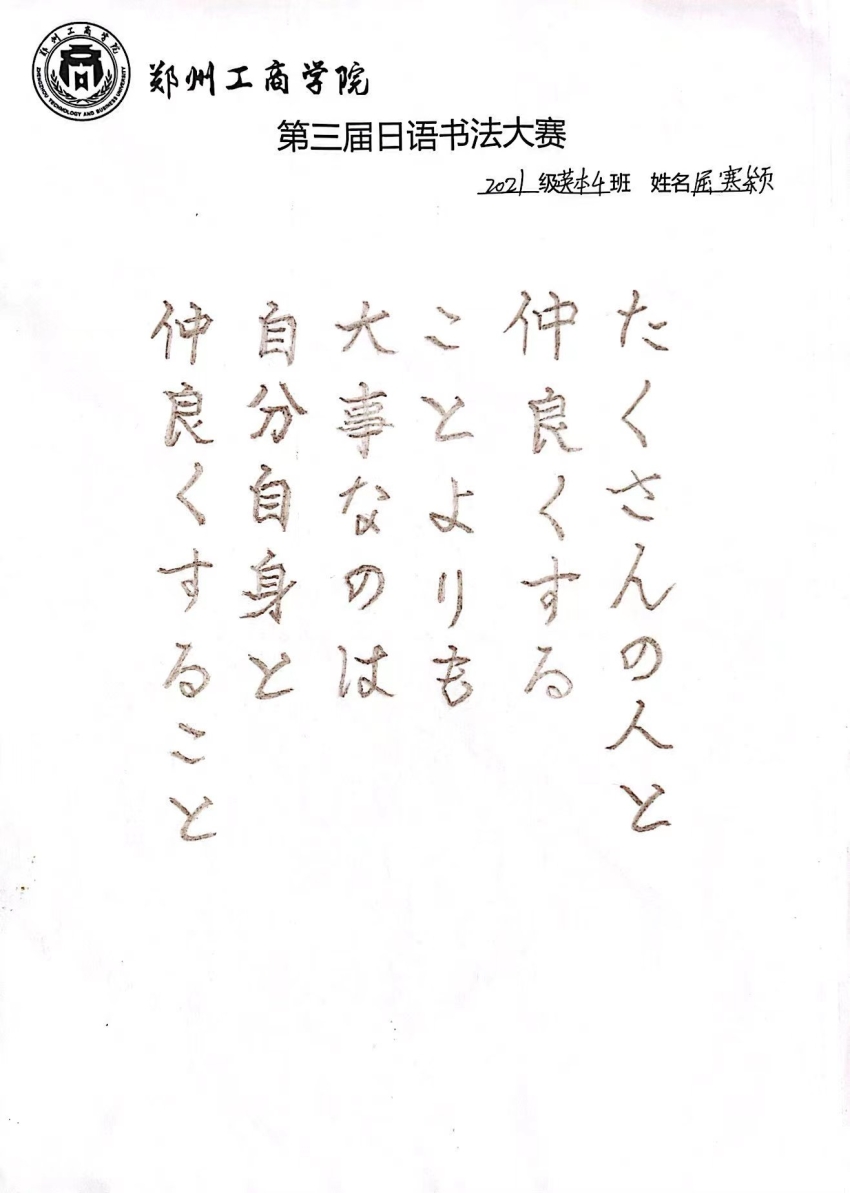 郑州工商学院
ZHENGZHOU TECHNOLOGY AND BUSINESS UNIVERSITY
郑州工商学院
第三届日语书法大赛
2021级英本4班 姓名屈赛颖
たくさんの人と
仲良くする
ことよりも
大事なのは
自分自身と
仲良くすること